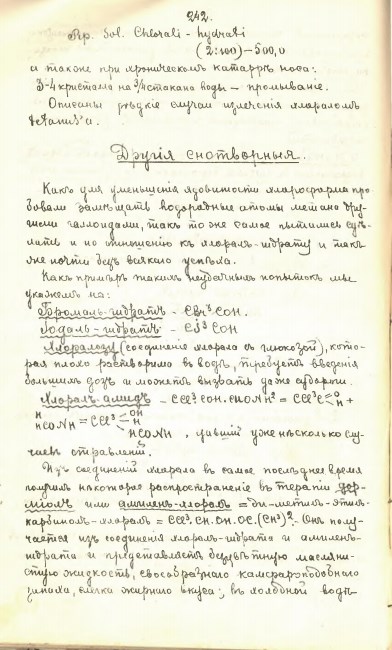 242.
Rp. Sol. Chlorali-hydrati
(2:100) – 500,0
а также при хроническомъ катаррѣ носа:
3-4 кристалла на 3/4 стакана воды – промыванiе.
Описаны рѣдкiе случаи излеченiя хлораломъ
tetanus'а.
Другiя снотворныя.
Какъ для уменьшенiя ядовитости хлороформа про-
бовали замѣщать водородные атомы метана дру-
гими галлоидами, такъ то же самое пытались сдѣ-
лать и по отношенiю къ хлоралъ-гидрату и такъ
же почти безъ всякаго успѣха.
Какъ примѣръ такихъ неудачныхъ попытокъ мы
укажемъ на:
Бромалъ-гидратъ – CBr³ COH.
Iодалъ-гидратъ – CJ³ COH
Хлоралозу (соединенiе хлорала съ глюкозой), кото-
рая плохо растворима въ водѣ, требуетъ введенiя
большихъ дозъ и можетъ вызвать даже судороги.
Хлоралъ-амидъ – CCl³ COH. CHONH² = CCl³C O H +
HCONH = CCl³ OH H
HCONH, давшiй уже нѣсколько слу-
чаевъ отравленiй.
Изъ соединенiй хлорала въ самое послѣднее время
получилъ некоторое распространенiе въ терапiи дор-
мiолъ или амиленъ-хлоралъ = ди-метилъ-этилъ-
карбинолъ-хлоралъ = CCl³. CH. OH. OC. (CH³)². Онъ полу-
чается изъ соединенiя хлоралъ-гидрата и амиленъ-
гидрата и представляетъ безцвѣтную масляни-
стую жидкость, своеобразнаго камфароподобнаго
запаха, слегка жгучаго вкуса; въ холодной водѣ